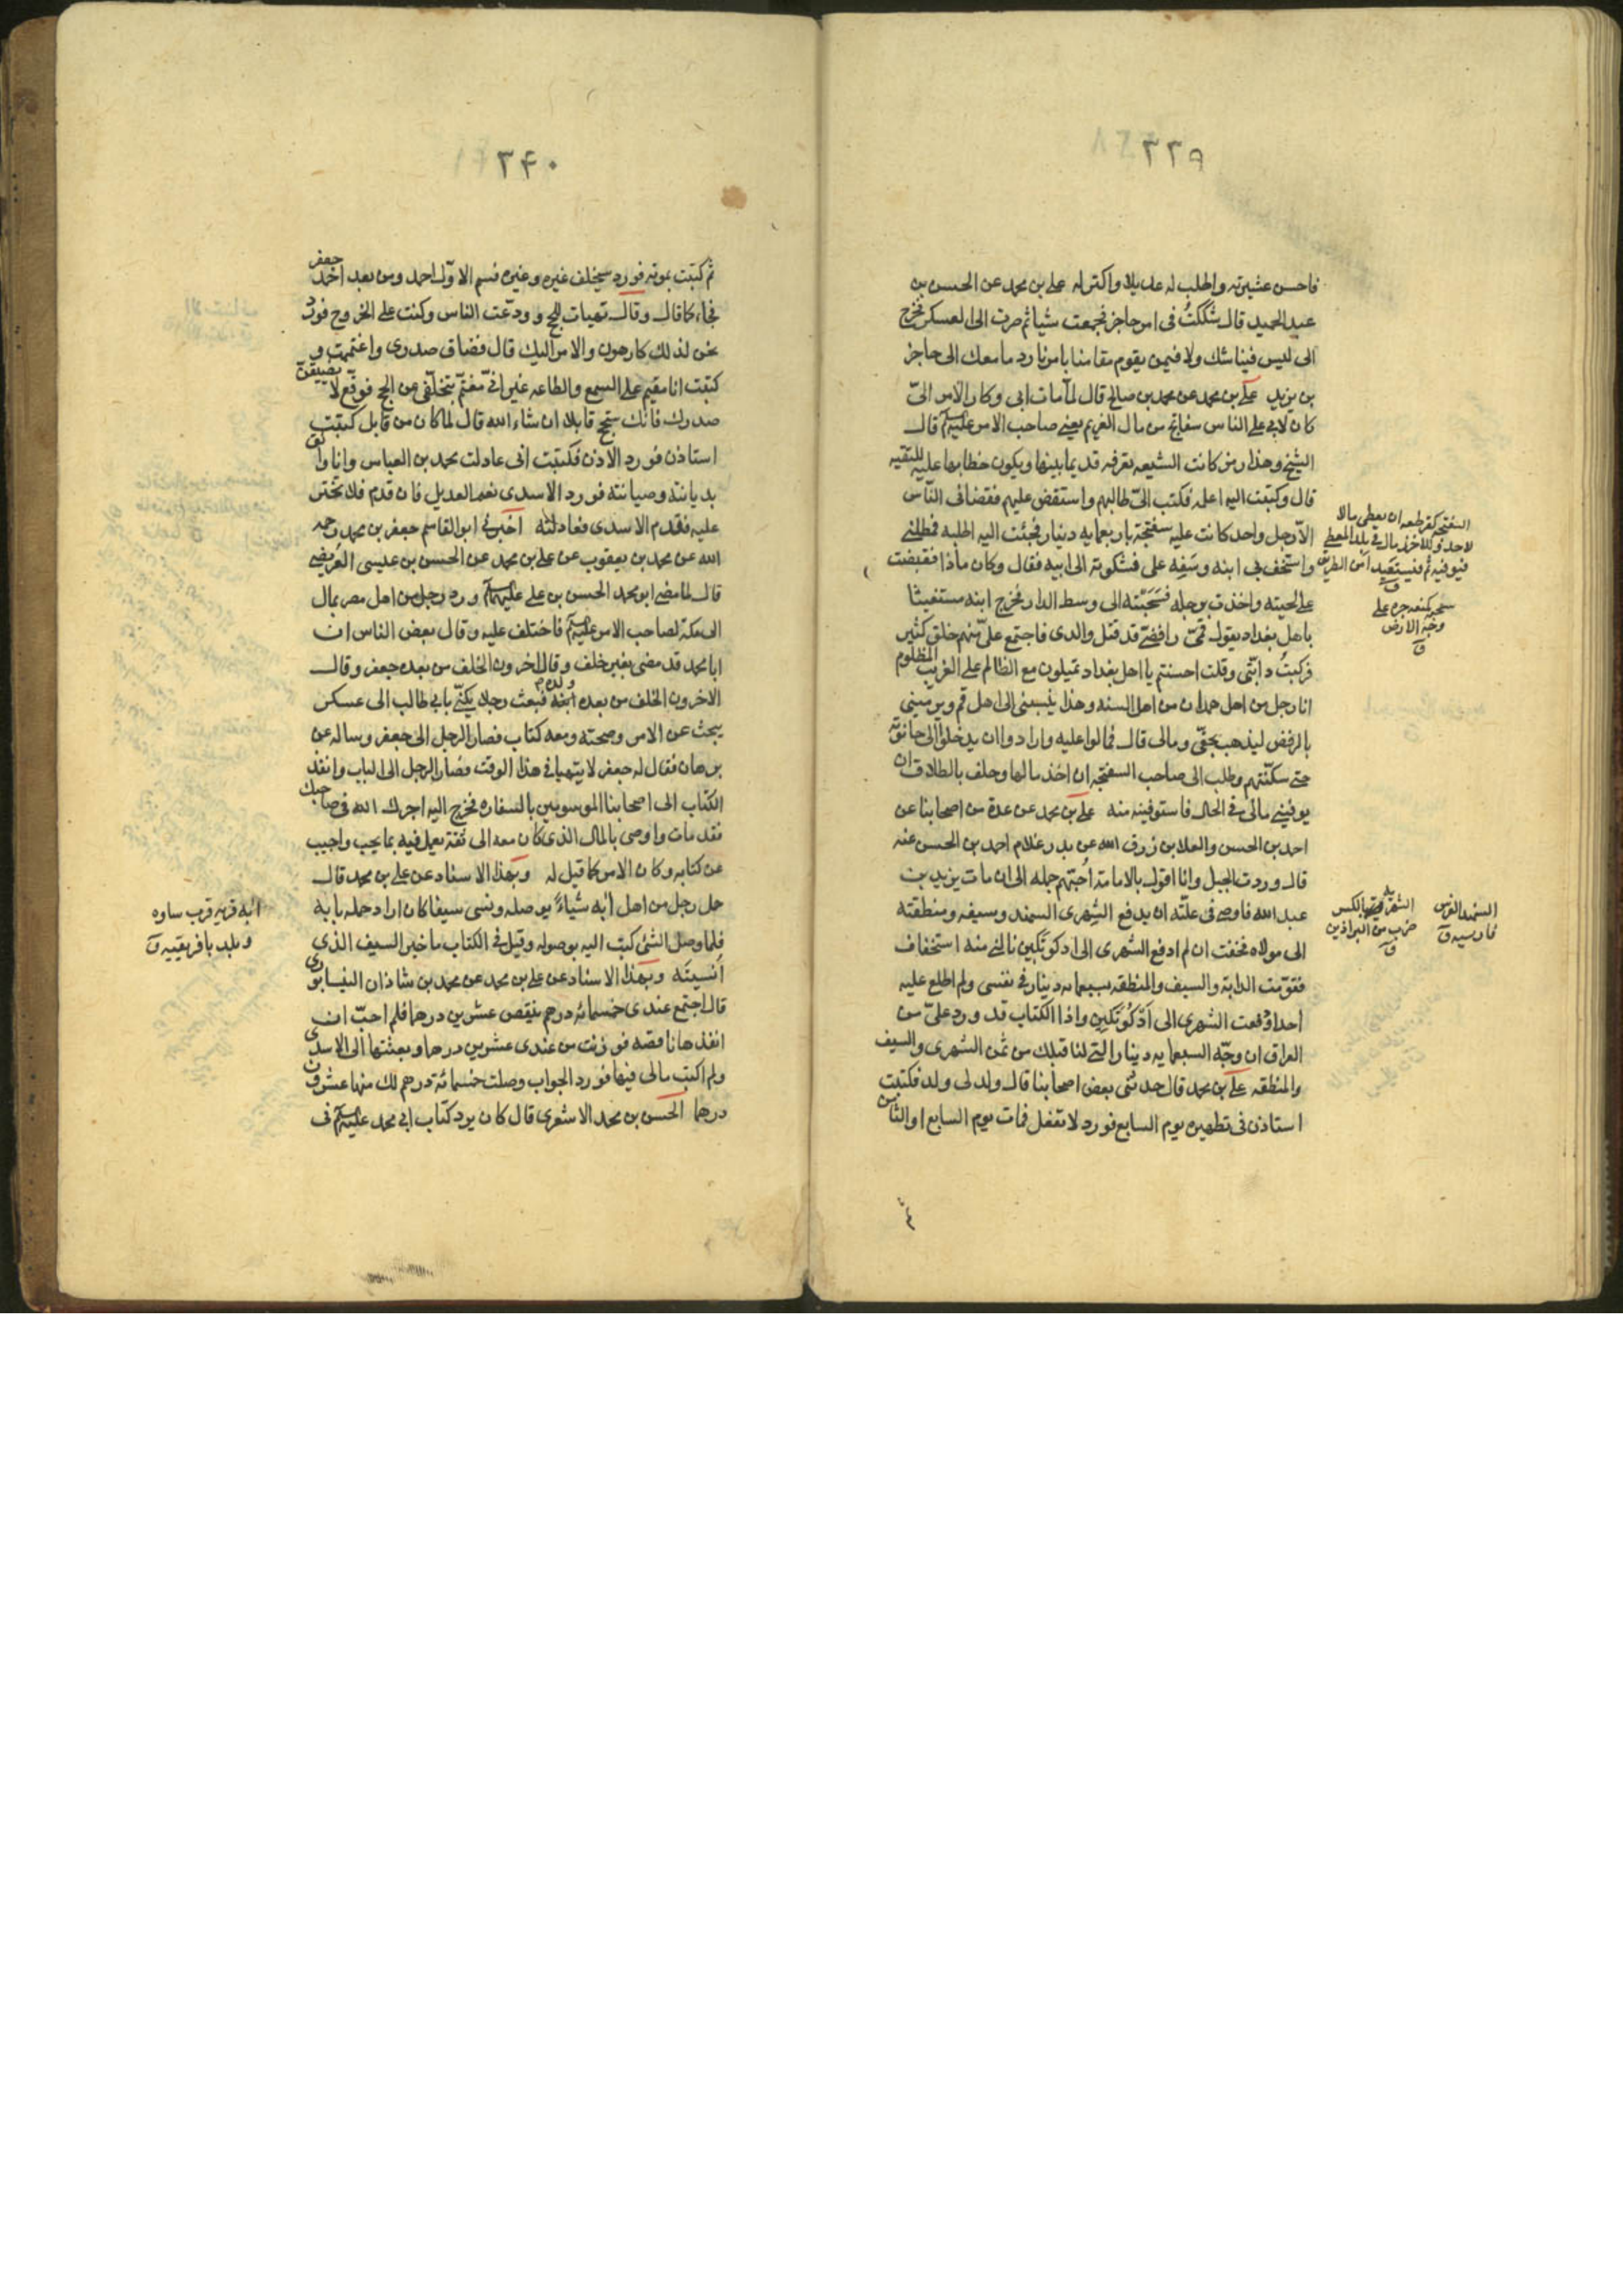 ٣٣٩
فاحسن عشيرته واطلب له عديلا واكترله على بن محمد عن الحسن بن
عبد الحميد قال شككتُ فى امر حاجز فجمعت شيئا ثم صرت الى العسكر فخرج
الى ليس فينا شك ولا فيمن يقوم مقامنا بامرنا رد ما معك الى حاجز
بن يزيد على بن محمد عن محمد بن صالح قال لمّا مات ابى وكان الامر الىّ
كان لابى على الناس سفاتج من مال الغريم يعنى صاحب الامر عليه السلم قال
الشيخ وهذا رمز كانت الشيعه تعرفه قديما بينها ويكون خطابها عليه للتقيه
قال وكتبت اليه اعلمه فكتب الىّ طالبهم واستقض عليهم فقضانى النّاس
الاّ رجل واحد كانت عليه سفتجة باربعمايه دينار فجئت اليه اطلبه فمطلنى
واستخف بى ابنه وسَفِه على فشكوته الى ابيه فقال وكان ماذا فقبضت
على لحيته واخذت برجله فسَحَبْته الى وسط الدار فخرج ابنه مستغيثا
باهل بغداد يقول قمّى رافضىّ قد قتل والدى فاجتمع علىّ منهم خلق كثير
فركبتُ دابّتى وقلت احسنتم يا اهل بغداد تميلون مع الظالم على الغريب المظلوم
انا رجل من اهل همدان من اهل السنه وهذا ينسبنى الى اهل قم ويرمينى
بالرفض ليذهب بحقّى ومالى قال فمالوا عليه وارادوا ان يدخلوا الى حانوته
حتى سكنّتهم وطلب الى صاحب السفتجه ان اخذ مالها وحلف بالطلاق ان
يوفينى مالى فى الحال فاستوفيته منه على بن محمد عن عدة من اصحابنا عن
احمد بن الحسن والعلا بن رزق الله عن بدر غلام احمد بن الحسن عنه
قال وردت الجبل وانا اقول بالامامة اُحبّهم جمله الى ان مات يزيد بن
عبد الله فاوصى فى علّته ان يدفع الشِهرى السمند وسيفه ومنطقته
الى مولاه فخفت ان لم ادفع الشهرى الى اذكوتكين نالنى منه استخفاف
فقوّمت الدابة والسيف والمنطقه بسبعمايه دينار فى نفسى ولم اطلع عليه
احدا ودفعت الشهرى الى اذكُوتَكين واذا الكتاب قد ورد علىّ من
العراق ان وجّه السبعمايه دينار التى لنا قبلك من ثمن الشهرى والسيف
والمنطقه على بن محمد قال حدثنى بعض اصحابنا قال ولد لى ولد فكتبت
استاذن فى تطهيره يوم السابع فورد لا تفعل فمات يوم السابع او الثامن
السفتجه كقرطعه ان يعطى مالا
لاحد وللاخذ مال فى بلد المعطى
فيوفيه ثم فيستفيد امن الطريق
ق
سحبه كمنعه جره على
وجه الارض
ق
الشهريه بالكسر
ضرب من البراذين
ق
السمند الفرس
فارسيه ق
٣۴٠
ثم كتبت بموته فورد سيخلف غيره وغيره فسم الاوّل احمد ومن بعد احمد جعفر
فجاء كما قال وقال تهيات للحج وودّعت الناس وكنت على الخروج فورد
نحن لذلك كارهون والامر اليك قال فضاق صدرى واغتممت و
كتبت انا مقيم على السمع والطاعه غير انّى مغتمّ بتخلّفى عن الحج فوقّع لا يضيقنّ
صدرك فانك ستحج قابلا ان شاء الله قال لما كان من قابل كتبت
استاذن فورد الاذن فكتبت انى عادلت محمد بن العباس وانا واثق
بديانته وصيانته فورد الاسدى نعم العديل فان قدم فلا تختر
عليه فقدم الاسدى فعادلته اخبرنى ابو القاسم جعفر بن محمد رحمه
الله عن محمد بن يعقوب عن على بن محمد عن الحسن بن عيسى العُريضى
قال لما مضى ابو محمد الحسن بن على عليهما السلم ورد رجل من اهل مصر بمال
الى مكة لصاحب الامر عليه السلم فاختلف عليه وقال بعض الناس ان
ابا محمد قد مضى بغير خلف وقال اخرون الخلف من بعده جعفر وقال
الاخرون الخلف من بعده ولده فبعث رجلا يكنّى بابى طالب الى عسكر
يبحث عن الامر وصحته ومعه كتاب فصار الرجل الى جعفر وساله عن
برهان فقال له جعفر لا يتهيا فى هذا الوقت فصار الرجل الى الباب وانفذ
الكتاب الى اصحابنا الموسومين بالسفاره فخرج اليه اجرك الله فى صاحبك
فقد مات واوصى بالمال الذى كان معه الى ثقة يعمل فيه بما يحب واجيب
عن كتابه وكان الامر كما قيل له وبهذا الاسناد عن على بن محمد قال
حمل رجل من اهل آبه شياءً يوصله ونسى سيفا كان اراد حمله بابه
فلما وصل الشئ كتب اليه بوصوله وقيل فى الكتاب ما خبر السيف الذى
اُنسيتَه وبهذا الاسناد عن على بن محمد عن محمد بن شاذان النيسابورى
قال اجتمع عندى خمسمائه درهم ينقص عشرين درهما فلم احبّ ان
انفذها ناقصه فوزنت من عندى عشرين درهما وبعثتها الى الاسدى
ولم اكتب مالى فيها فورد الجواب وصلت خمسمائة درهم لك منها عشرون
درهما الحسن بن محمد الاشعرى قال كان يرد كتاب ابى محمد عليه السلم فى
آبه قريه قرب ساوه
وبلد بافريقيه ق